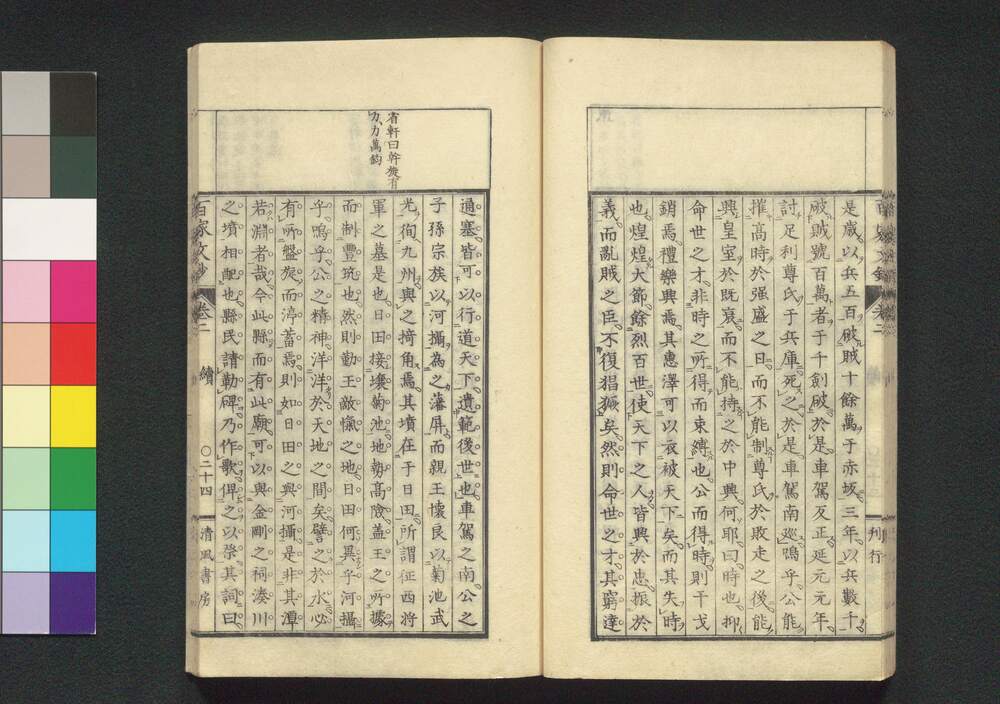 是歲以兵五百破賊十餘萬于赤坂三年以兵數十
破賊號百萬者于千劍破於是車駕反正延元元年
討足利尊氏于兵庫死之於是車駕南巡嗚乎公能
摧高時於强盛之日而不能制尊氏於敗走之後能
興皇室於既衰而不能持之於中興何耶曰時也抑
命世之才非時之所得而束縛也公而得時則干戈
銷焉禮樂興焉其惠澤可以衣被天下矣而其失時
也煌煌大節餘烈百世使天下之人皆興於忠振於
義而亂賊之臣不復猖獗矣然則命世之才其窮達
刊行
省軒曰幹旋有
力、力萬鈞
通塞皆可以行道天下遺範後世也車駕之南公之
子孫宗族以河攝為之藩屏而親王懷良以菊池武
光徇九州與之掎角焉其墳在于日田所謂征西將
軍之墓是也日田接壤菊池地勢高險蓋王之所據
而制豐筑也然則勤王敵愾之地日田何異乎河攝
乎嗚乎公之精神洋洋於天地之間矣譬之於水必
有所盤旋而渟蓄焉則如日田之與河攝是非其潭
若淵者哉今此縣而有此廟可以與金剛之祠湊川
之墳相配也縣民請勒碑乃作歌俾之以祭其詞曰
百家文鈔
卷二
續
〇二十四
清風書房